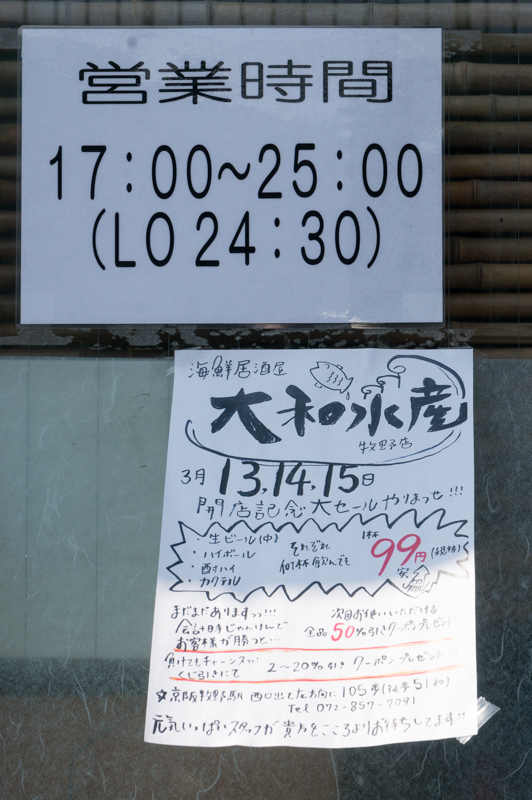 営業時間
17:00~25:00
(LO 24:30)
海鮮居酒屋
大和水産
牧野店
3月 13,14,15日
開店記念大セールやりまっせ!!!
・生ビール(中)
・ハイボール
・酎ハイ
・カクテル
それぞれ
何杯飲んでも
1杯
99円(税抜)
まだまだありますっっ!!!
会計時じゃんけんで
お客様が勝つと…
次回お使いいただける
全品50%引きクーポンプレゼント
負けてもチャンスっ♡
くじ引きにて
2〜20%引き クーポンプレゼント!!
☆京阪牧野駅 西口出て左方向に105歩(徒歩51秒)
Tel 072-857-7091
元気いっぱいスタッフが貴方をこころよりお待ちしてます!!